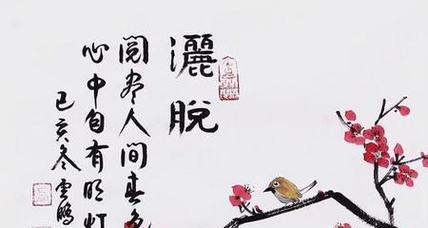 灑脫
閱尽人間春色
心中自有明灯
己亥冬雲鵬